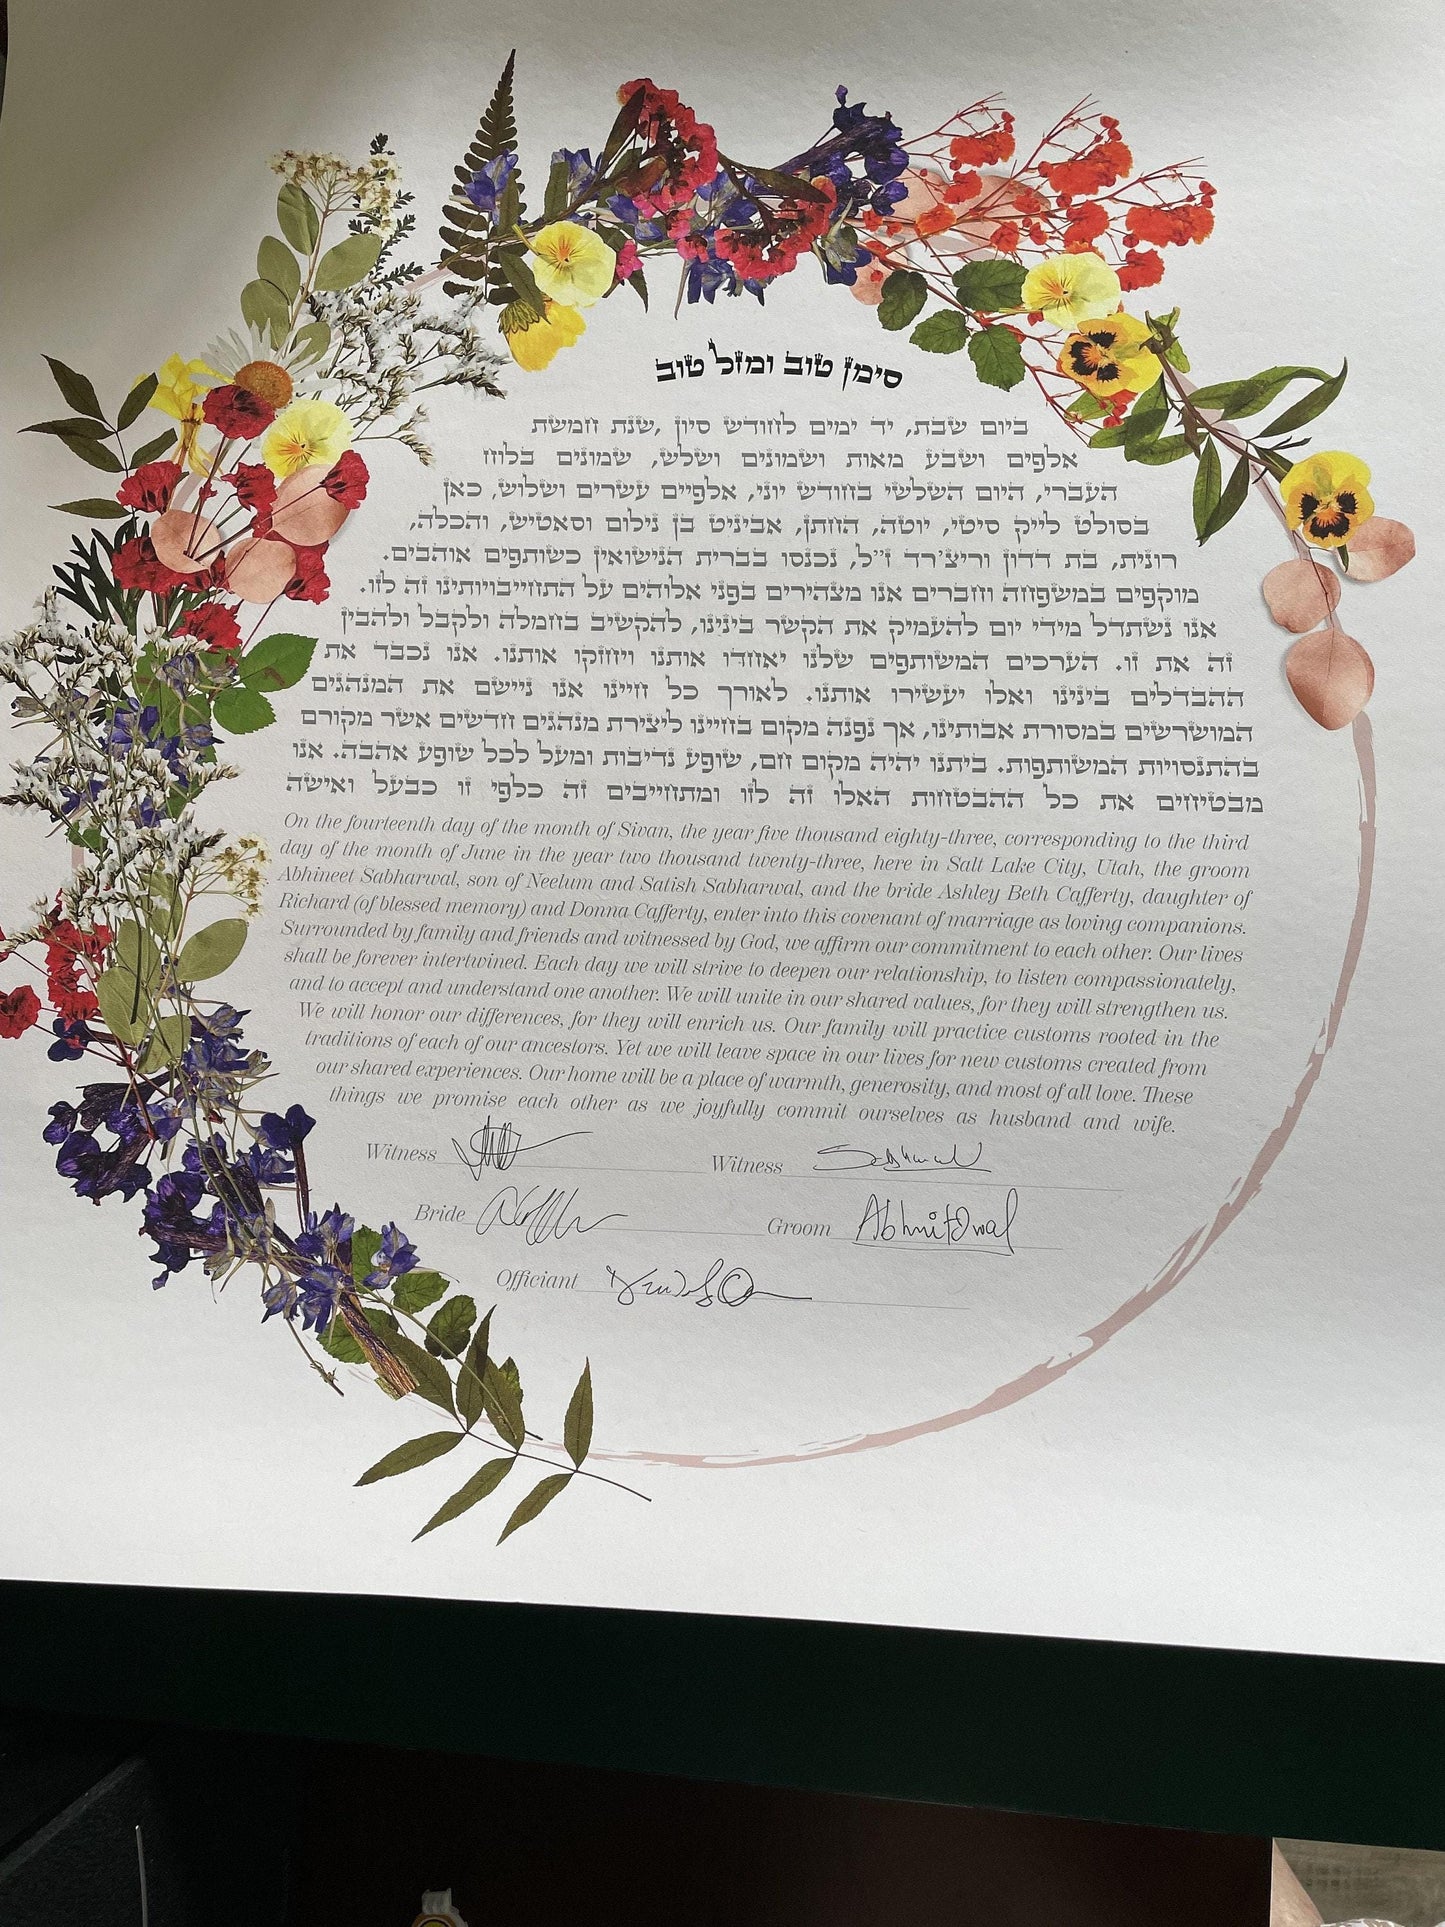 סימן טוב ומזל טוב
ביום שבת, יד ימים לחודש סיון ,שנת חמשת
אלפים ושבע מאות ושמונים ושלש, שמונים בלוח
העברי, היום השלשי בחודש יוני, אלפיים עשרים ושלוש, כאן
בסולט לייק סיטי, יוטה, החתן, אביניט בן נילום וסאטיש, והכלה,
רונית, בת דדון וריצ'רד ז״ל, נכנסו בברית הנישואין כשותפים אוהבים.
מוקפים במשפחה וחברים אנו מצהירים בפני אלוהים על התחייבויותינו זה לזו.
אנו נשתדל מידי יום להעמיק את הקשר בינינו, להקשיב בחמלה ולקבל ולהבין
זה את זו. הערכים המשותפים שלנו יאחדו אותנו ויחזקו אותנו. אנו נכבד את
ההבדלים בינינו ואלו יעשירו אותנו. לאורך כל חיינו אנו ניישם את המנהגים
המושרשים במסורת אבותינו, אך נפנה מקום בחיינו ליצירת מנהגים חדשים אשר מקורם
בהתנסויות המשותפות. ביתנו יהיה מקום חם, שופע נדיבות ומעל לכל שופע אהבה. אנו
מבטיחים את כל ההבטחות האלו זה לזו ומתחייבים זה כלפי זו כבעל ואישה
On the fourteenth day of the month of Sivan, the year five thousand eighty-three, corresponding to the third
day of the month of June in the year two thousand twenty-three, here in Salt Lake City, Utah, the groom
Abhineet Sabharwal, son of Neelum and Satish Sabharwal, and the bride Ashley Beth Cafferty, daughter of
Richard (of blessed memory) and Donna Cafferty, enter into this covenant of marriage as loving companions.
Surrounded by family and friends and witnessed by God, we affirm our commitment to each other. Our lives
shall be forever intertwined. Each day we will strive to deepen our relationship, to listen compassionately,
and to accept and understand one another. We will unite in our shared values, for they will strengthen us.
We will honor our differences, for they will enrich us. Our family will practice customs rooted in the
traditions of each of our ancestors. Yet we will leave space in our lives for new customs created from
our shared experiences. Our home will be a place of warmth, generosity, and most of all love. These
things we promise each other as we joyfully commit ourselves as husband and wife.
Witness Witness
Bride Groom
Officiant